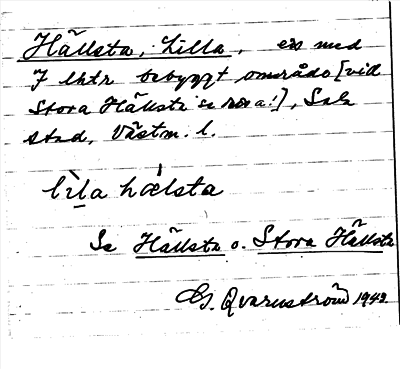 Hällsta, Lilla, ex med
7 lhtr bebyggt område [vid
Stora Hällsta se ], Sala
stad, Västm. l.
lìl̲a hǽlsta
Se Hällsta o. Stora Hällsta
G. Qvarnström 1943.